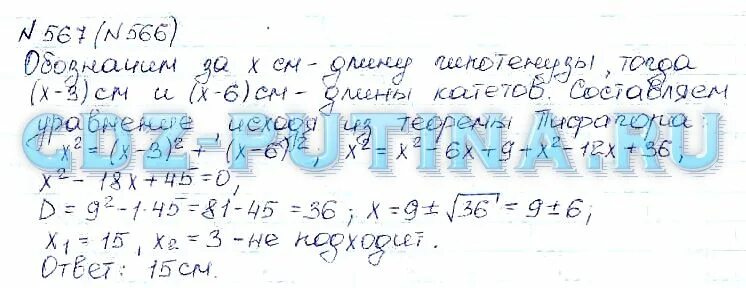 N 567 (N 566)
Обозначим за x см - длину гипотенузы, тогда
(x-3) см и (x-6) см - длины катетов. Составляем
уравнение, исходя из теоремы Пифагора:
x² = (x-3)² + (x-6)², x² = x² - 6x + 9 + x² - 12x + 36,
x² - 18x + 45 = 0,
D = 9² - 1·45 = 81 - 45 = 36; x = 9 ± √36 = 9 ± 6;
x₁ = 15, x₂ = 3 - не подходит.
Ответ: 15 см.
GDZ-PUTINA.RU